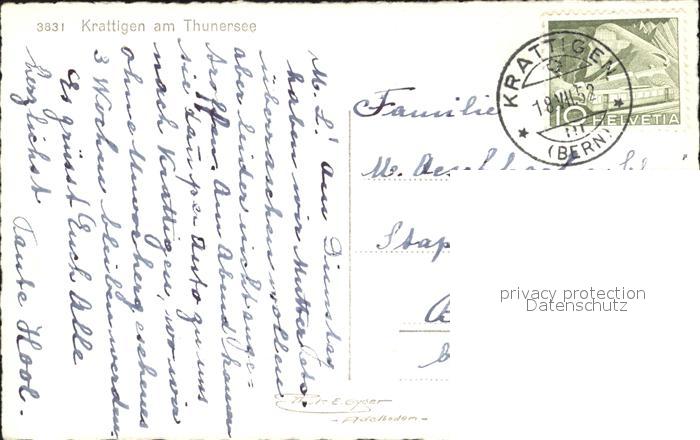 3831 Krattigen am Thunersee
M. L! Am Dienstag
haben wir Mutter
überraschen wollen
aber leider nicht ange-
troffen. Am Abend kamen
sie dann per Auto zu uns
nach Krattigen, wo wir
ohne Unvorhergesehenes
3 Wochen bleiben werden.
Es grüsst Euch Alle
herzlichst Tante
KRATTIGEN
18.VII.52
III
(BERN)
10 HELVETIA
Familie
M.
Stap
privacy protection
Datenschutz
Phot. E. Gyger
- Adelboden -